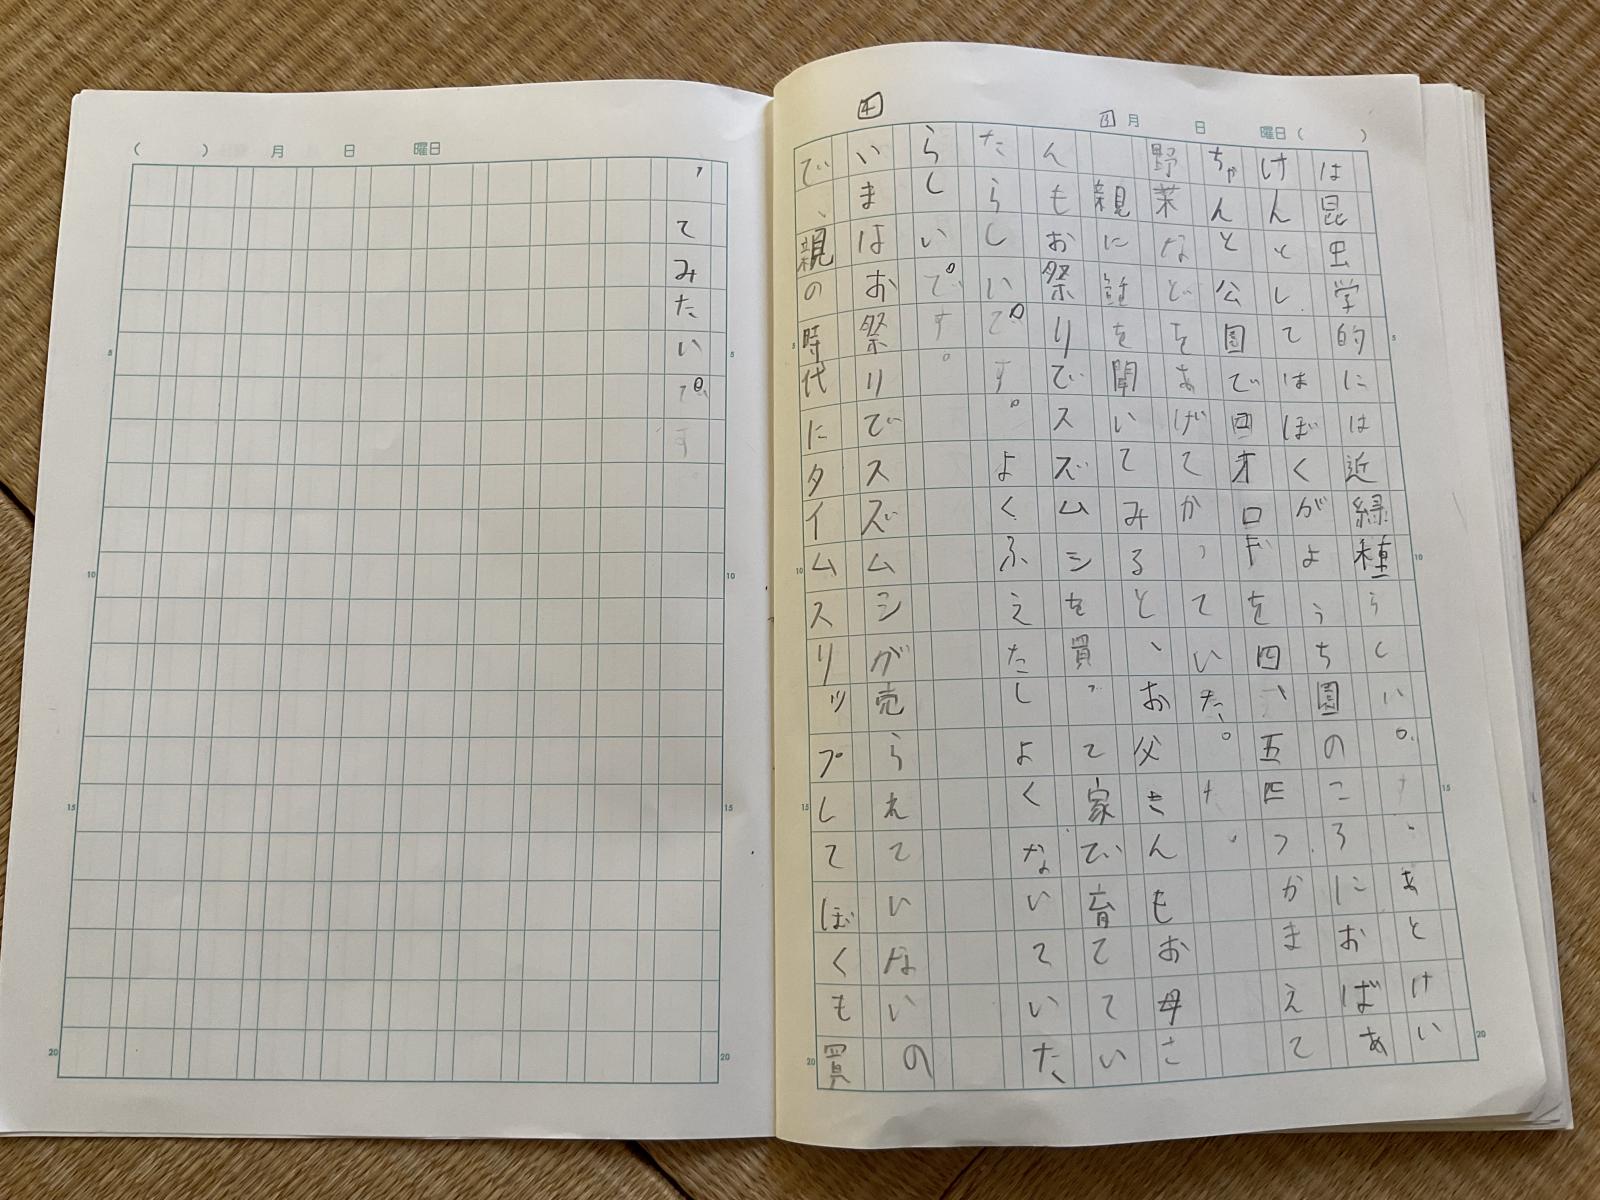 3 月 日 曜日( )
は昆虫学的には近縁種らしいです。あとけい
けんとしてはぼくがようち園のころにおばあ
ちゃんと公園でコオロギを四、五匹つかまえて
野菜などをあげてかっていた。た。
親に話を聞いてみると、お父さんもお母さ
んもお祭りでスズムシを買って家で育ててい
たらしいです。よくふえたしよくないていた
らしいです。
4
いまはお祭りでスズムシが売られていないの
で、親の時代にタイムスリップしてぼくも買
( ) 月 日 曜日
ってみたいです
5
10
15
20
5
10
15
20
5
10
15
20
5
10
15
20